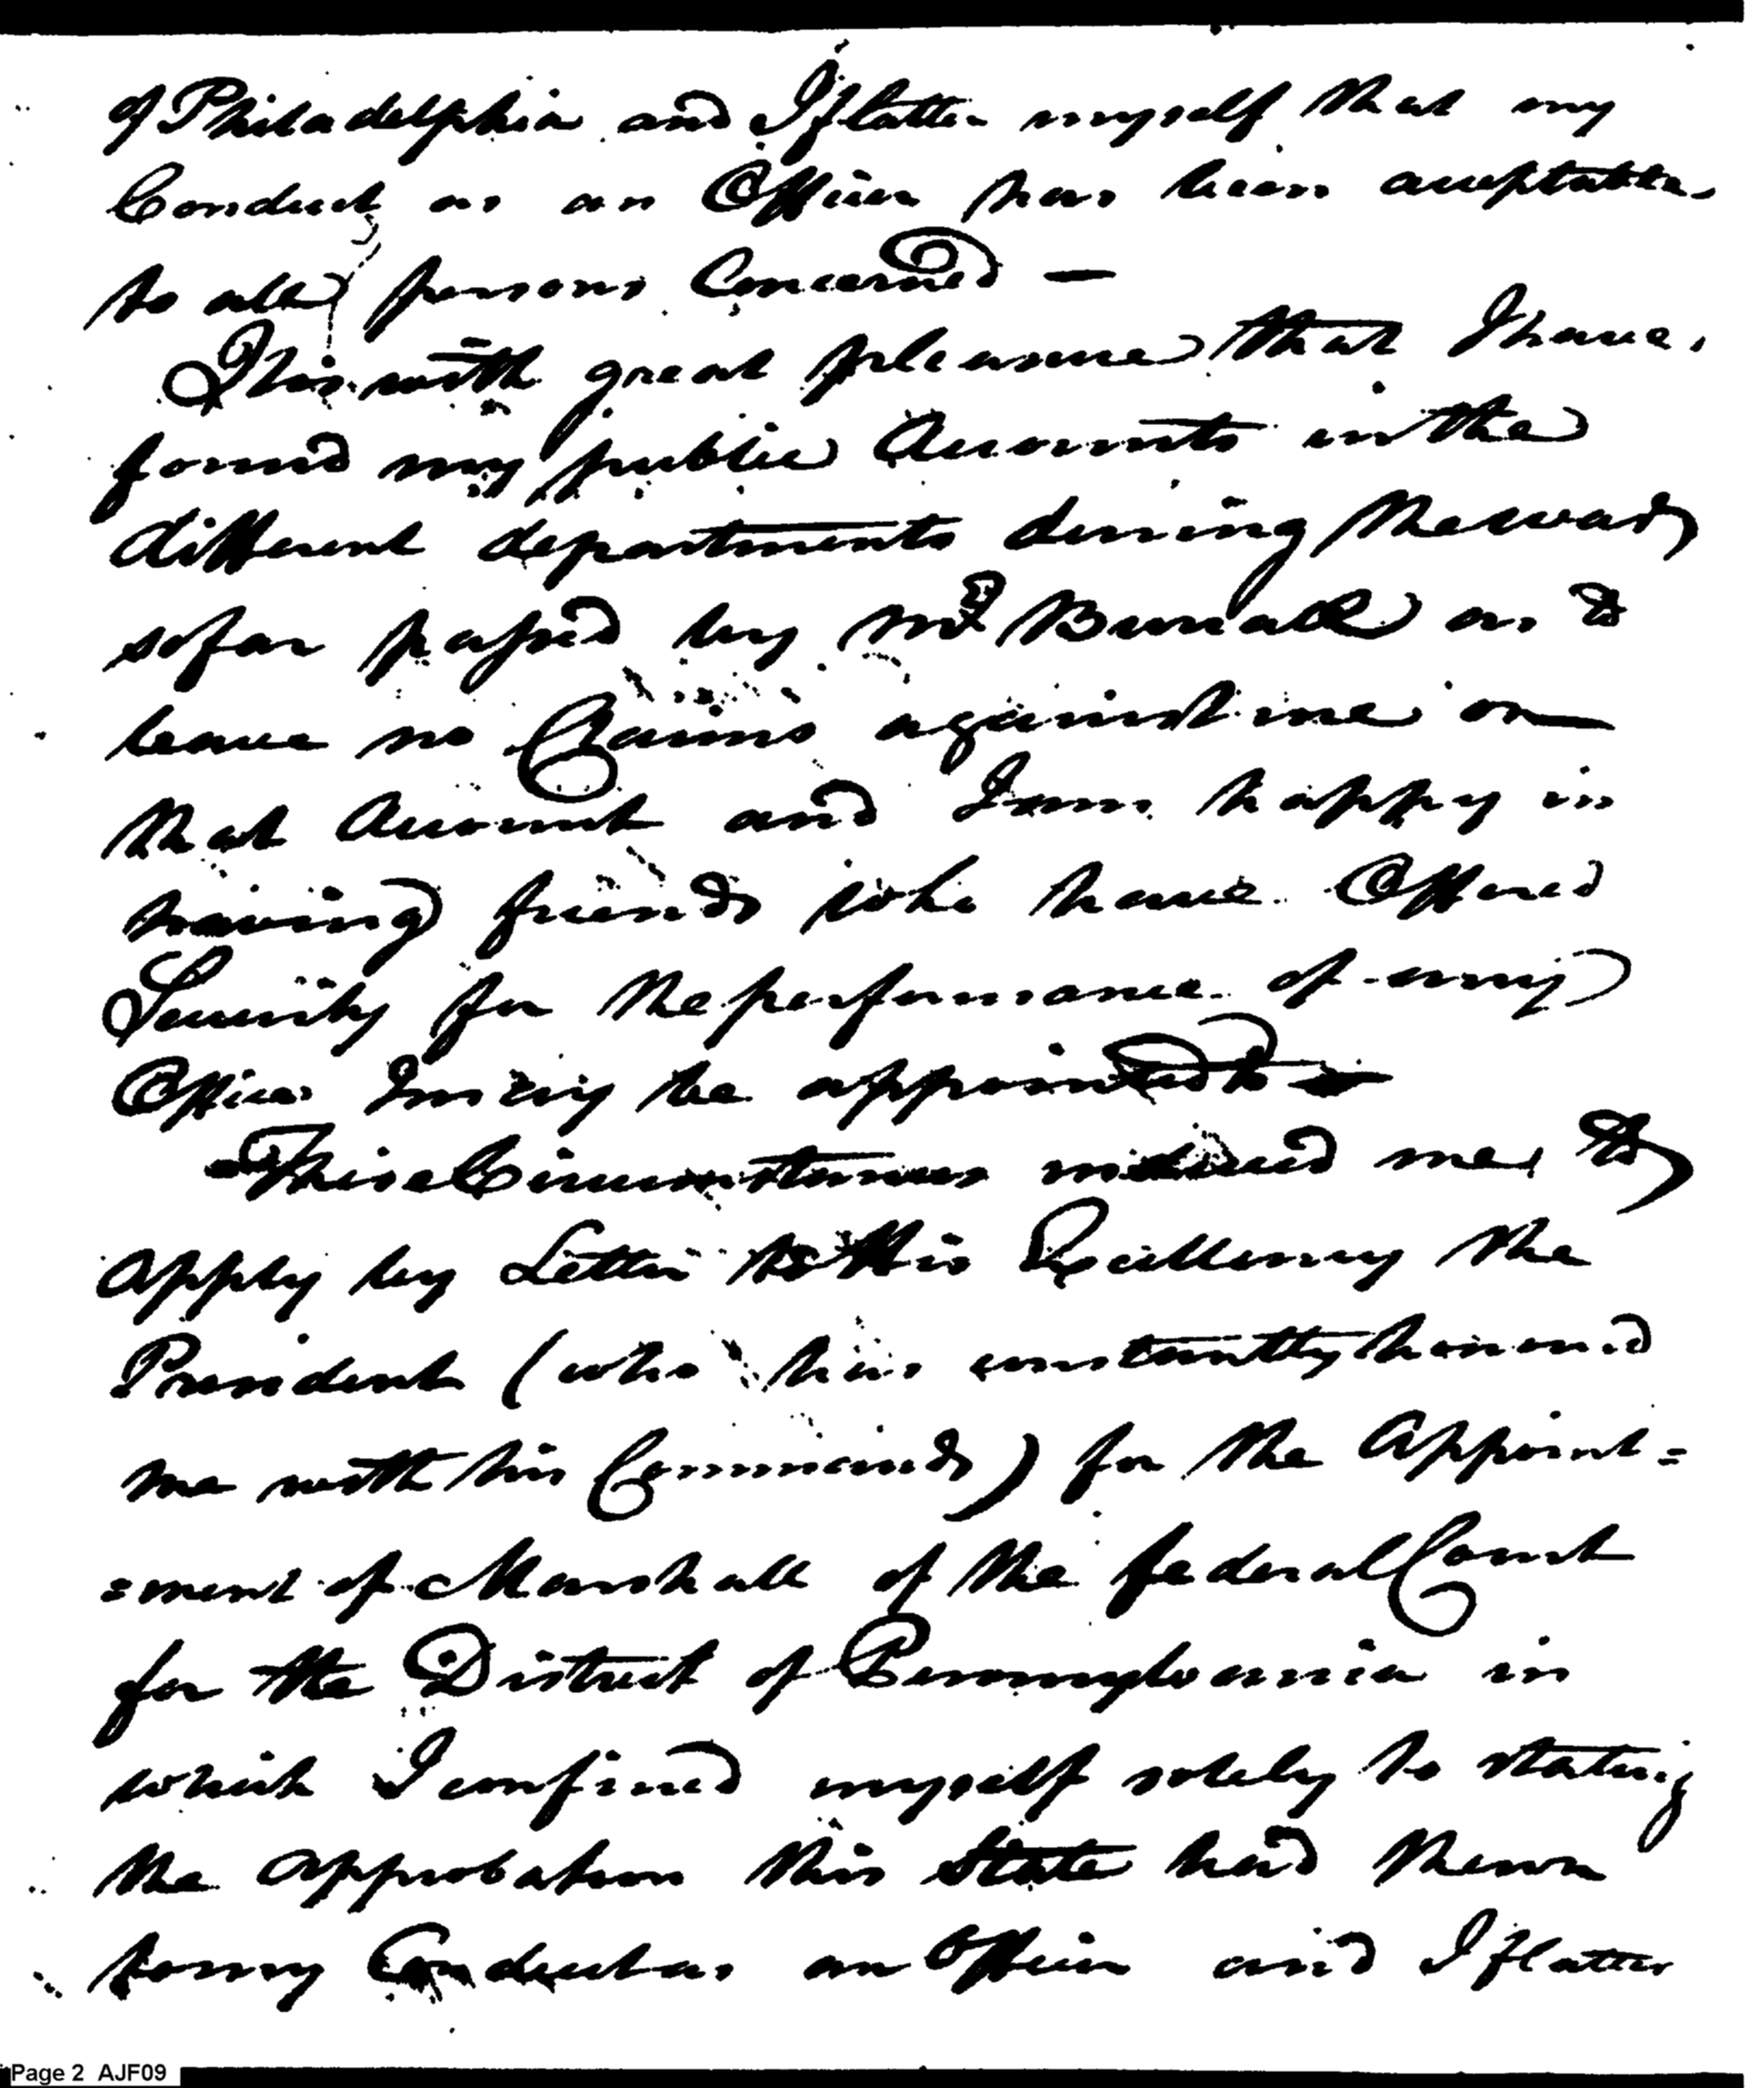 of Philadelphia and I flatter myself that my
Conduct as an Officer has been acceptable
to all persons Concerned —
It is with great pleasure that I have
found my public Accounts in the
different departments during the war
so far passed by Mr Burrall as to
leave no Claims against me on
that Account and I am happy in
having friends who have Offered
Security for the performance of any
Office I may be appointed to
These Circumstances induced me to
apply by Letter to His Excellency the
President (who has constantly honored
me with his Commands) for the Appoint=
=ment of Marshall of the federal Court
for the District of Pennsylvania in
which I confined myself solely to stating
the approbation this State had shewn
to my Conduct as an Officer and I flatter
Page 2 AJF09